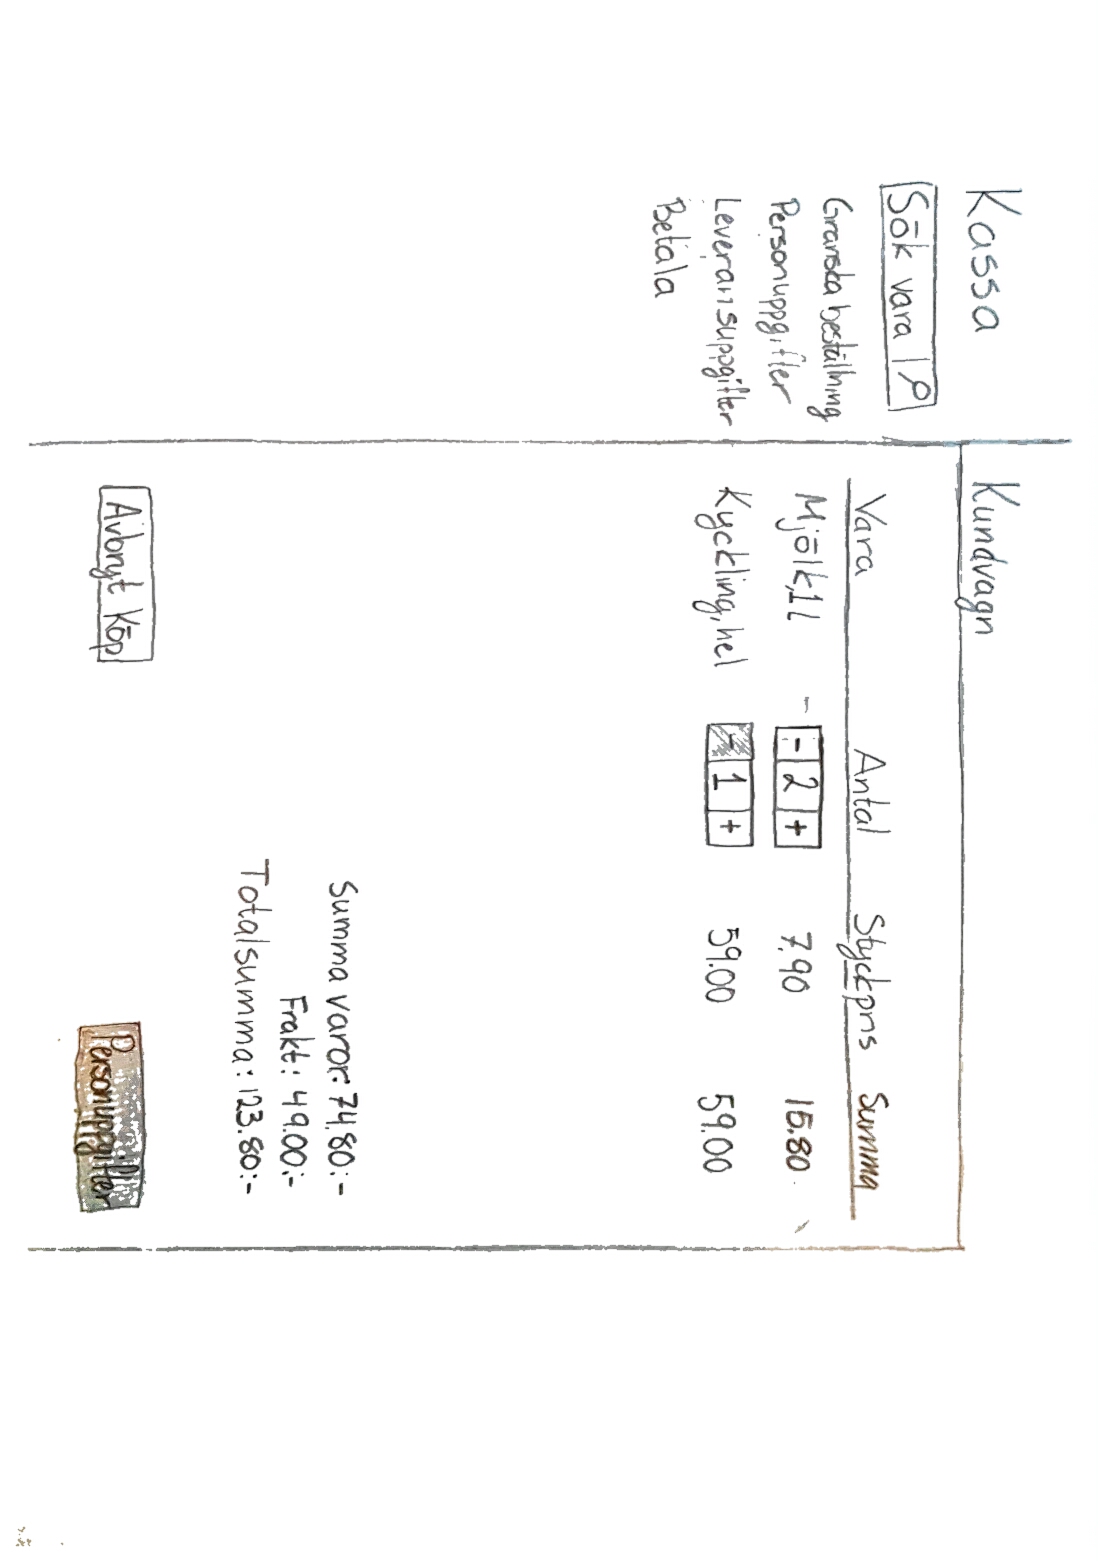 Kassa
Sök vara
Granska beställning
Personuppgifter
Leveransuppgifter
Betala
Kundvagn
Vara Antal Styckpris Summa
Mjölk,1l - - 2 + 7.90 15.80
Kyckling, hel - 1 + 59.00 59.00
Summa varor: 74.80:-
Frakt: 49.00:-
Totalsumma: 123.80:-
Avbryt Köp
Personuppgifter